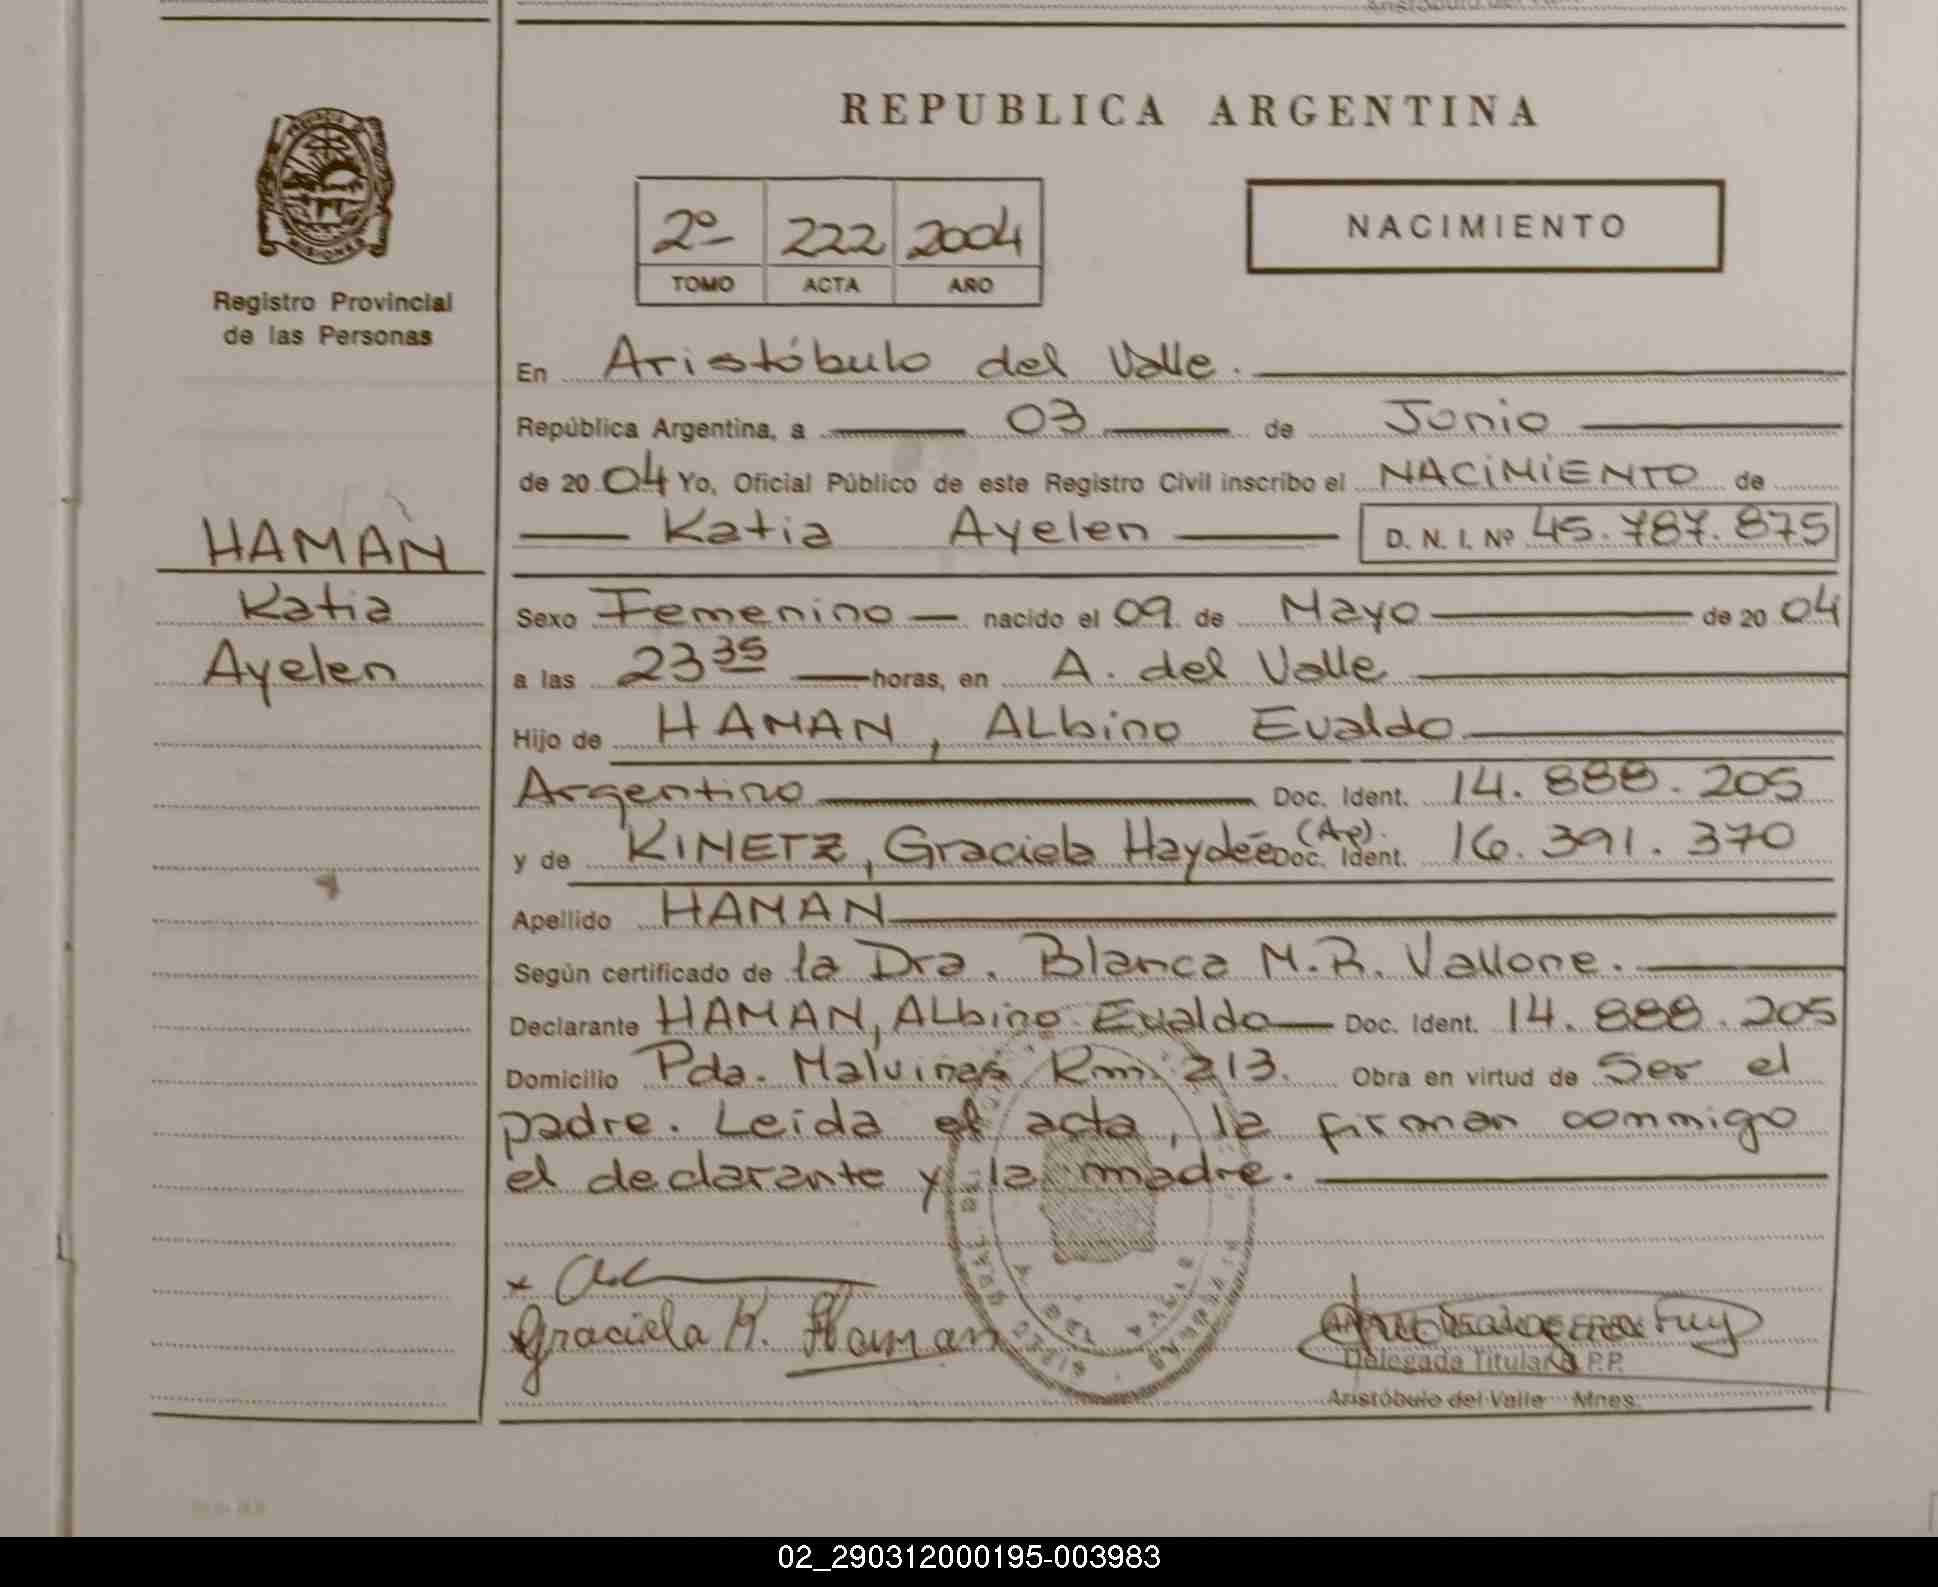 REPUBLICA ARGENTINA
2º 222 2004
TOMO ACTA AÑO
NACIMIENTO
MISIONES
Registro Provincial
de las Personas
HAMAN
Katia
Ayelen
En Aristóbulo del Valle.
República Argentina, a 03 de Junio
de 2004 Yo, Oficial Público de este Registro Civil inscribo el NACIMIENTO de
Katia Ayelen D. N. I. Nº 45.787.875
Sexo Femenino nacido el 09 de Mayo de 2004
a las 23 35 horas, en A. del Valle
Hijo de HAMAN, Albino Evaldo
Argentino Doc. Ident. 14.888.205
y de KINETZ, Graciela Haydée (Arg). Doc. Ident. 16.391.370
Apellido HAMAN
Según certificado de la Dra. Blanca M.R. Vallone.
Declarante HAMAN, Albino Evaldo Doc. Ident. 14.888.205
Domicilio Pda. Malvinas Km 213. Obra en virtud de Ser el
padre. Leida el acta, la firman conmigo
el declarante y la madre.
Graciela H. Haman
Delegada Titular R.P.P.
Aristóbulo del Valle Mnes.
02_290312000195-003983